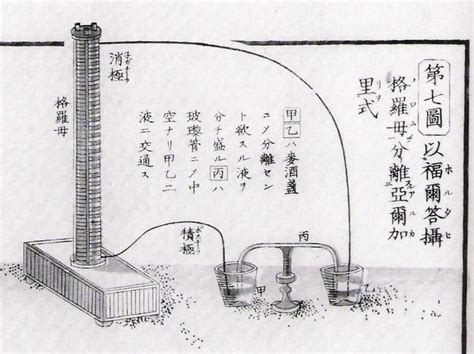 第七圖 以福爾答攝
格羅母分離亞爾加
里式
甲乙ハ麥酒盞
ニメ分離セン
ト欲スル液ヲ
分チ盛ル丙ハ
玻瓈管ニメ中
空ナリ甲乙二
液ニ交通ス
消極
格羅母
積極
丙
甲
乙